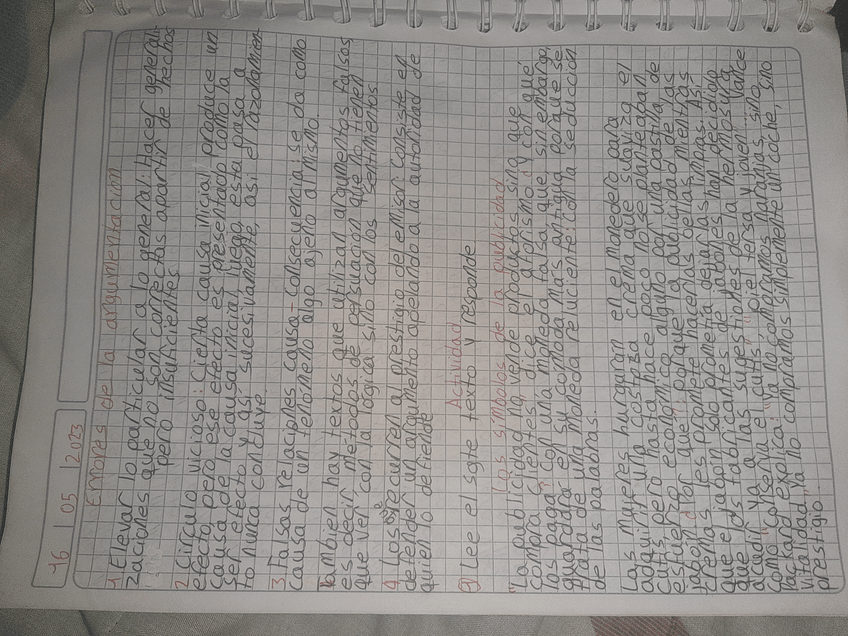 16 | 05 | 2023
Errores de la argumentación
1 Elevar lo particular a lo general: Hacer generali-
zaciones que no son correctas apartir de hechos
pero insuficientes
2 Círculo vicioso: Cierta causa inicial produce un
efecto, pero ese efecto es presentado como la
causa de la causa inicial, luego esta pasa a
ser efecto y así sucesivamente, así el razonamien
to nunca concluye.
3 Falsas relaciones causa-consecuencia: se da como
causa de un fenómeno algo ajeno al mismo.
También hay textos que utilizan argumentos falsos
es decir métodos de persuación que no tienen
que ver con la lógica sino con los sentimientos
4 Los que recurren al prestigio del emisor: Consiste el
defender un argumento apelando a la autoridad de
quien lo defiende
Actividad
Lee el sgte texto y responde
Los símbolos de la publicidad
"La publicidad no vende productos sino que
compra clientes", dice el aforismo ¿y con qué
los paga? con una moneda falsa que, sin embargo,
guardará en su cómoda más antigua porque se
trata de una moneda reluciente: con la seducción
de las palabras.
Las mujeres hurgarán en el monedero para
adquirir una costosa crema que suaviza el
cutis, pero hasta hace poco no se planteaban
esfuerzo económico alguno por una pastilla de
jabón ¿Por qué? porque la publicidad de las
cremas les promete hacerlas bellas, mientras
que el jabón sólo prometía dejarlas limpias. Así
que los fabricantes de jabones han decidido
acudir ya a las sugestiones de la hermosura
como "conserve el cutis y piel tersa y joven". Vance
Packard explica: "ya no compramos naranjas, sino
vitalidad, ya no compramos simplemente un coche, sino
prestigio".